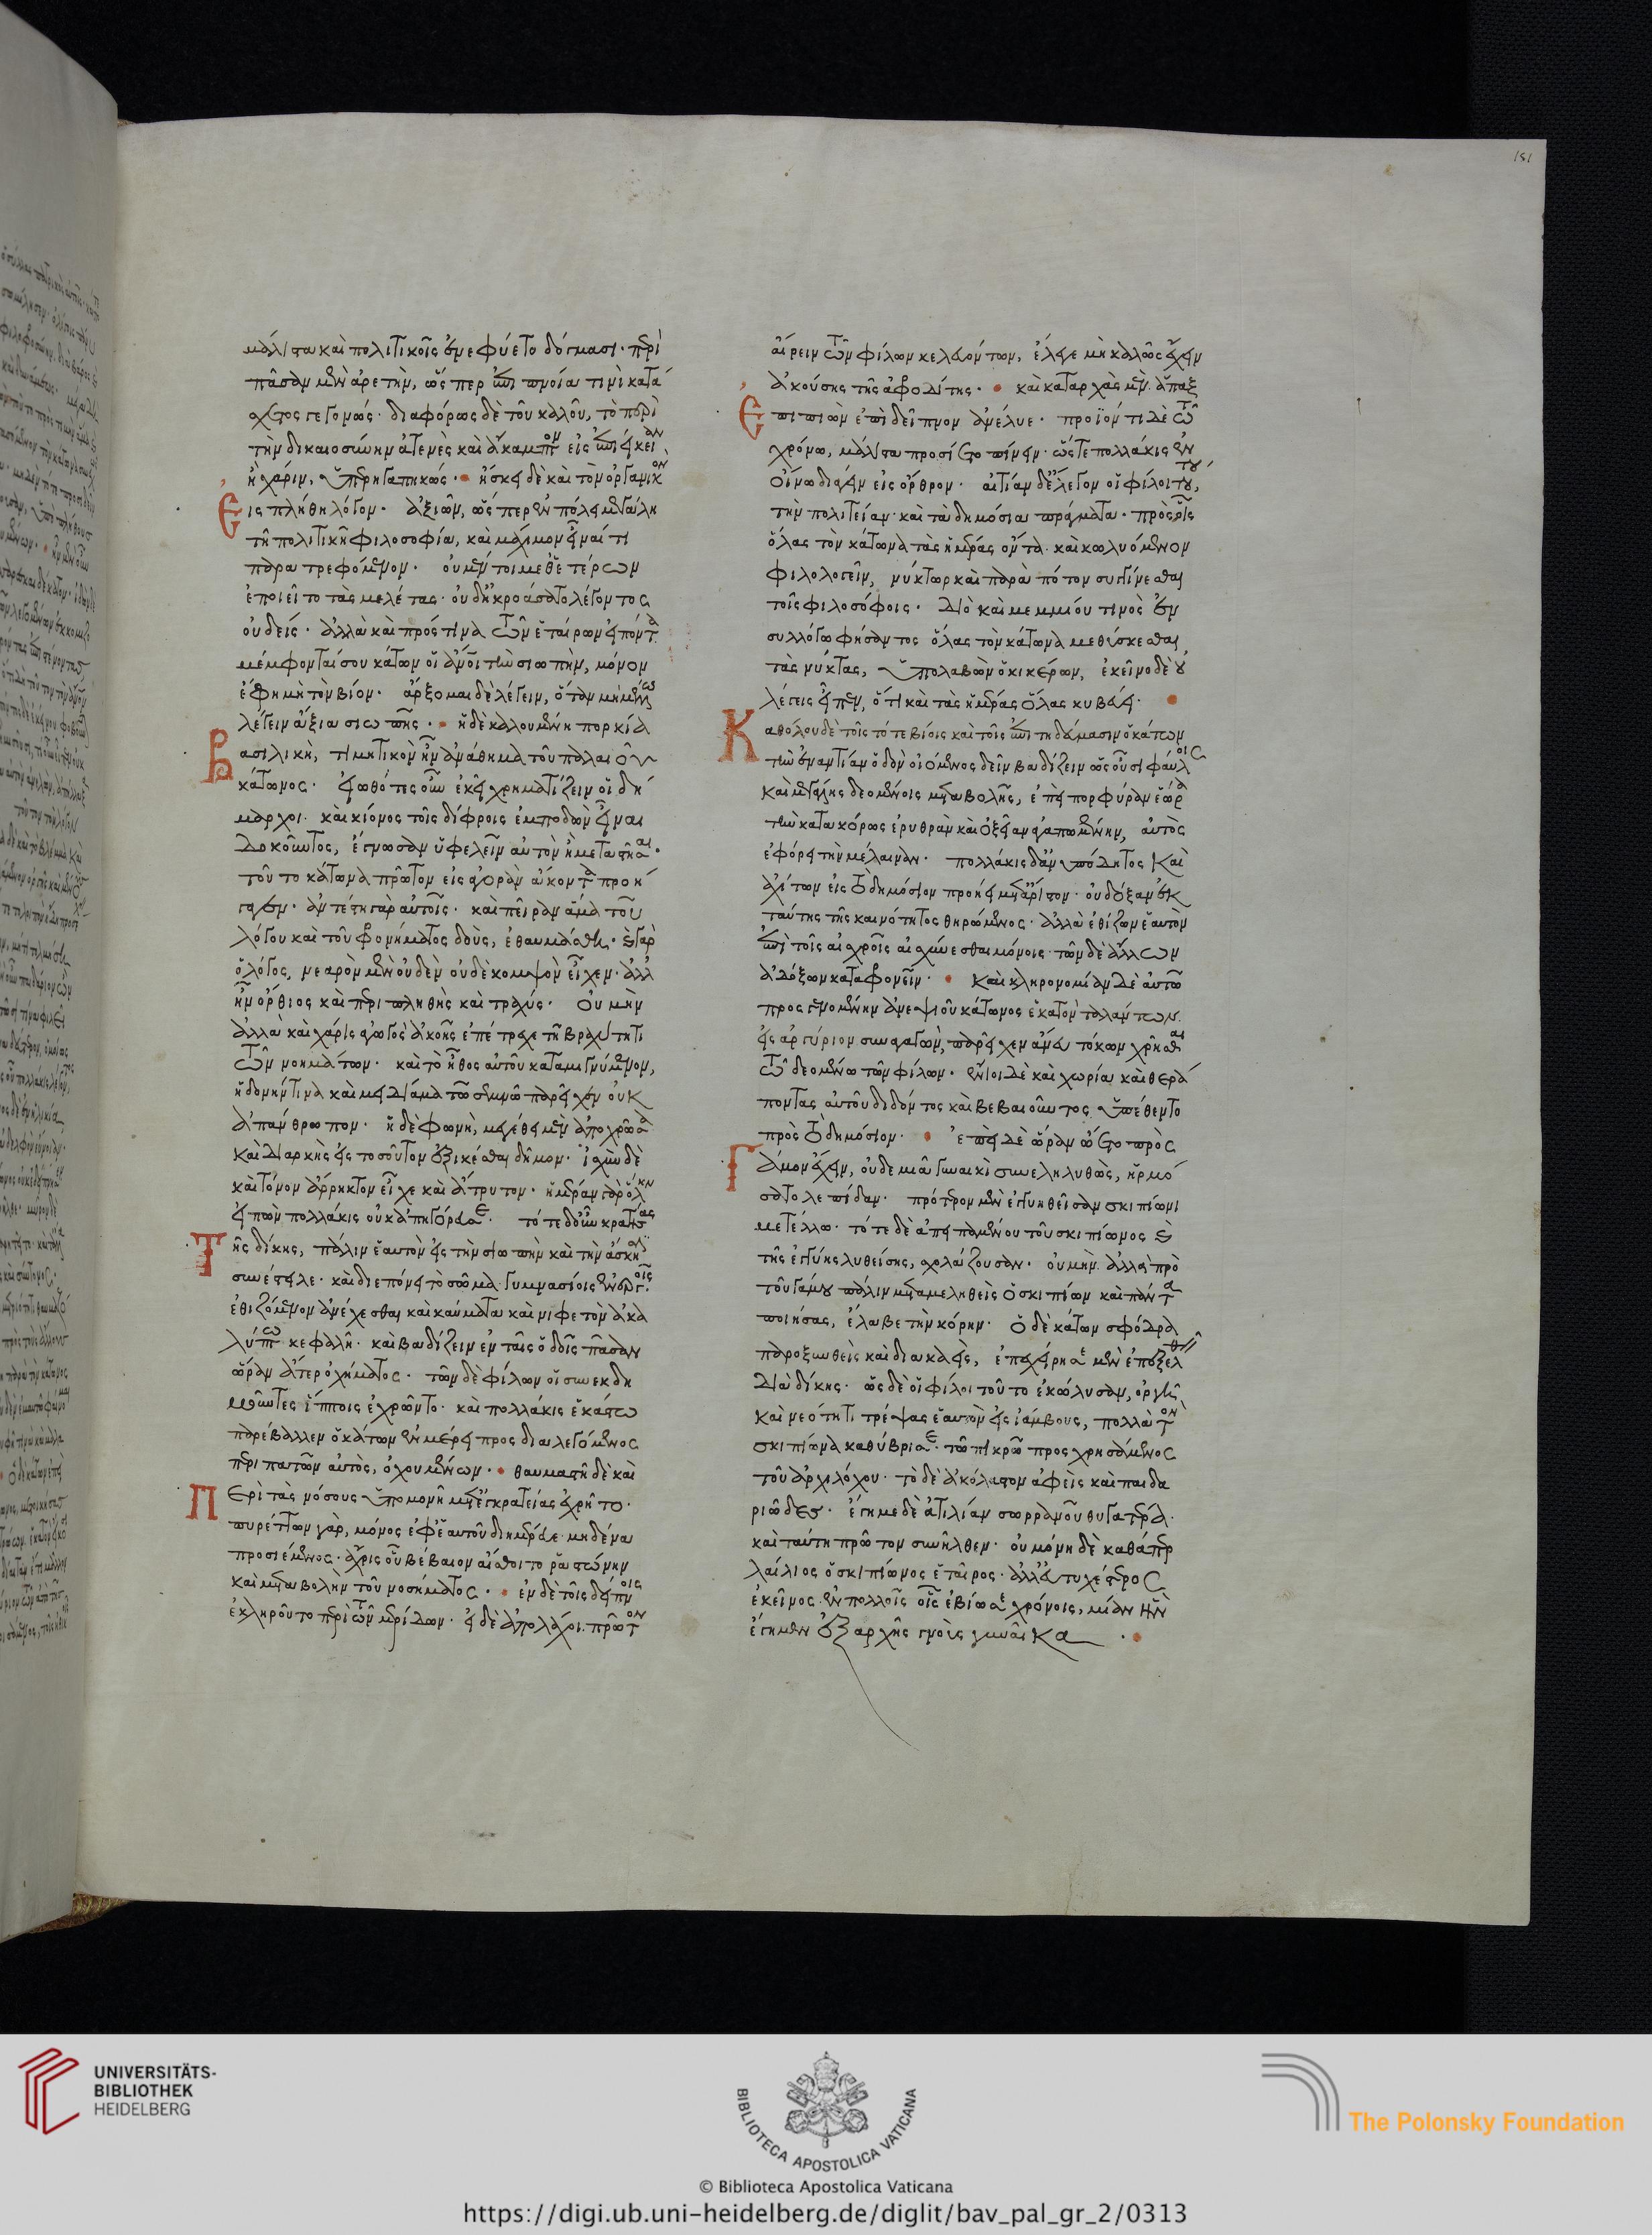 μάλιστα καὶ πολιτικοῖς ἐνεφύετο δόγμασι· περὶ
πᾶσαν μὲν ἀρετὴν, ὥσπερ ἐπιπνοία τινὶ κατά
σχετος γεγονώς· διαφόρως δὲ τοῦ καλοῦ, τὸ περὶ
τὴν δικαιοσύνην ἀτενὲς καὶ ἄκαμπτον εἰς ἐπιείκειαν
ἢ χάριν, ὑπερηγαπηκώς· ἤσκει δὲ καὶ τὸν ὀργανικὸν
Εἰς πλήθη λόγον· ἀξιῶν, ὥσπερ ἐν πόλει μεγάλη
τῆ πολιτικῆ φιλοσοφία, καὶ μάχιμον εἶναί τι
παρατρεφόμενον· οὐ μέν τοι μεθ ἑτέρων
ἐποιεῖτο τὰς μελέτας· οὐδ ἠκροάσατο λέγοντος
οὐδείς· ἀλλὰ καὶ πρός τινα τῶν ἑταίρων εἰπόντα
μέμφονταί σου κάτων οἱ ἄνοι τὴν σιωπὴν, μόνον
ἔφη μὴ τὸν βίον· ἄρξομαι δὲ λέγειν, ὅταν μὴ μέλλω
λέγειν ἄξια σιωπῆς· ἡ δὲ καλουμένη πορκία
Βασιλικὴ, τιμητικὸν ἦν ἀνάθημα τοῦ παλαιοῦ
κάτωνος· εἰωθότες οὖν ἐκεῖ χρηματίζειν οἱ δή
μαρχοι· καὶ κίονος τοῖς δίφροις ἐμποδὼν εἶναι
δοκοῦντος, ἔγνωσαν ὑφελεῖν αὐτὸν ἢ μεταστῆσαι·
τοῦτο κάτωνα πρῶτον εἰς ἀγορὰν ἄκοντα προή
γαγεν· ἀντέστη γὰρ αὐτοῖς· καὶ πεῖραν ἅμα τοῦ
λόγου καὶ τοῦ φρονήματος δοὺς, ἐθαυμάσθη· ὁ γὰρ
ὁ λόγος, νεαρὸν μὲν οὐδὲν οὐδὲ κομψὸν εἶχεν· ἀλλ
ἦν ὄρθιος καὶ περιπληθὴς καὶ τραχύς· Οὐ μὴν
ἀλλὰ καὶ χάρις ἀγωγὸς ἀκοῆς ἐπέτρεχε τῆ βραχύτητι
τῶν νοημάτων· καὶ τὸ ἦθος αὐτοῦ καταμιγνύμενον,
ἡδονήν τινα καὶ μειδίαμα τῶ σεμνῶ παρεῖχεν οὐκ
ἀπάνθρωπον· ἡ δὲ φωνὴ, μεγέθει μὲν ἀποχρῶσα
καὶ διαρκὴς εἰς τοσοῦτον ἐξικέσθαι δῆμον· ἰσχὺν δὲ
καὶ τόνον ἄρρηκτον εἶχε καὶ ἄτρυτον· ἡμέραν γὰρ ὅλην
εἰπὼν πολλάκις οὐκ ἀπηγόρευσε· τότε δ οὖν κρατήσας
Τῆς δίκης, πάλιν ἑαυτὸν εἰς τὴν σιωπὴν καὶ τὴν ἄσκησιν
συνέστειλε· καὶ διεπόνει τὸ σῶμα γυμνασίοις ἐνεργοῖς·
ἐθιζόμενον ἀνέχεσθαι καὶ καύματα καὶ νιφετὸν ἀκα
λύπτω κεφαλῆ· καὶ βαδίζειν ἐν ταῖς ὁδοῖς πᾶσαν
ὥραν ἄτερ ὀχήματος· τῶν δὲ φίλων οἱ συνεκδη
μοῦντες ἵπποις ἐχρῶντο· καὶ πολλάκις ἑκάστω
παρέβαλλεν ὁ κάτων ἐν μέρει προσδιαλεγόμενος
περιπατῶν αὐτὸς, ὀχουμένων· θαυμαστῆ δὲ καὶ
Περὶ τὰς νόσους ὑπομονῆ μετ ἐγκρατείας ἐχρῆτο·
πυρέττων γὰρ, μόνος ἐφ ἑαυτοῦ διημέρευε μηδένα
προσιέμενος· ἄχρις οὗ βέβαιον αἴσθοιτο ῥαστώνην
καὶ μεταβολὴν τοῦ νοσήματος· ἐν δὲ τοῖς δείπνοις
ἐκληροῦτο περὶ τῶν μερίδων· εἰ δὲ ἀπολάχοι πρῶτον
αἴρειν τῶν φίλων κελευόντων, ἔλεγε μὴ καλῶς ἔχειν
ἀκούσης τῆς ἀφροδίτης· καὶ καταρχὰς μὲν ἅπαξ
Ἐπιπιὼν ἐπὶ δεῖπνον ἀνέλυε· προϊόντι δὲ τῶ
χρόνω, μάλιστα προσίετο πίνειν· ὥστε πολλάκις ἐν
οἴνω διάγειν εἰς ὄρθρον· αἰτίαν δ ἔλεγον οἱ φίλοι τού
την πολιτείαν καὶ τὰ δημόσια πράγματα· πρὸς οἷς
ὅλας τὸν κάτωνα τὰς ἡμέρας ὄντα καὶ κωλυόμενον
φιλολογεῖν, νύκτωρ καὶ παρὰ πότον συγγίνεσθαι
τοῖς φιλοσόφοις· Διὸ καὶ μεμμίου τινὸς ἐν
συλλόγω φήσαντος ὅλας τὸν κάτωνα μεθύσκεσθαι
τὰς νύκτας, ὑπολαβὼν ὁ κικέρων, ἐκεῖνο δ οὐ
λέγεις εἶπεν, ὅτι καὶ τὰς ἡμέρας ὅλας κυβεύει·
Καθόλου δὲ τοῖς τότε βίοις καὶ τοῖς ἐπιτηδεύμασιν ὁ κάτων
τὴν ἐναντίαν ὁδὸν οἰόμενος δεῖν βαδίζειν ὡς οὖσι φαύλοις
καὶ μεγάλης δεομένοις μεταβολῆς, ἐπεὶ πορφύραν ἑώρα
τὴν κατακόρως ἐρυθρὰν καὶ ὀξεῖαν ἀγαπωμένην, αὐτὸς
ἐφόρει τὴν μέλαιναν· πολλάκις δ ἀνυπόδητος καὶ
ἀχίτων εἰς τὸ δημόσιον προήει μετ ἄριστον· οὐ δόξαν ἐκ
ταύτης τῆς καινότητος θηρώμενος· ἀλλὰ ἐθίζων ἑαυτὸν
ἐπὶ τοῖς αἰσχροῖς αἰσχύνεσθαι μόνοις· τῶν δὲ ἄλλων
ἀδόξων καταφρονεῖν· Καὶ κληρονομίαν δὲ αὐτῶ
προσγενομένην ἀνεψιοῦ κάτωνος ἑκατὸν ταλάντων
εἰς ἀργύριον συναγαγὼν, παρεῖχεν ἄνευ τόκων χρῆσθαι
τῶ δεομένω τῶν φίλων· ἔνιοι δὲ καὶ χωρία καὶ θερά
ποντας αὐτοῦ διδόντος καὶ βεβαιοῦντος ὑπέθεντο
πρὸς τὸ δημόσιον· ἐπεὶ δὲ ὥραν ᾤετο πρὸς
Γάμον ἔχειν, οὐδεμιᾶ γυναικὶ συνεληλυθὼς, ἡρμό
σατο λεπίδαν· πρότερον μὲν ἐγγυηθεῖσαν σκιπίωνι
μετέλλω· τότε δὲ ἀπειπαμένου τοῦ σκιπίωνος καὶ
τῆς ἐγγύης λυθείσης, σχολάζουσαν· οὐ μὴν ἀλλὰ πρὸ
τοῦ γάμου πάλιν μεταμεληθεὶς ὁ σκιπίων καὶ πάντα
ποιήσας, ἔλαβε τὴν κόρην· ὁ δὲ κάτων σφόδρα
παροξυνθεὶς καὶ διακαεὶς, ἐπεχείρησε μὲν ἐπεξελθεῖν
διὰ δίκης· ὡς δὲ οἱ φίλοι τοῦτο ἐκώλυσαν, ὀργῆ
καὶ νεότητι τρέψας ἑαυτὸν εἰς ἰάμβους, πολλὰ τὸν
σκιπίωνα καθύβρισε· τῶ πικρῶ προσχρησάμενος
τοῦ ἀρχιλόχου· τὸ δὲ ἀκόλαστον ἀφεὶς καὶ παιδα
ριῶδες· ἔγημε δὲ ἀτιλίαν σωρρανοῦ θυγατέρα·
καὶ ταύτη πρῶτον συνῆλθεν· οὐ μόνη δὲ καθάπερ
λαίλιος ὁ σκιπίωνος ἑταῖρος· ἀλλ εὐτυχέστερος
ἐκεῖνος ἐν πολλοῖς οἷς ἐβίωσε χρόνοις, μίαν ἣν
ἔγημεν ἐξ ἀρχῆς γνοὺς γυναῖκα
151
UNIVERSITÄTS-
BIBLIOTHEK
HEIDELBERG
BIBLIOTECA APOSTOLICA VATICANA
The Polonsky Foundation
© Biblioteca Apostolica Vaticana
https://digi.ub.uni-heidelberg.de/diglit/bav_pal_gr_2/0313